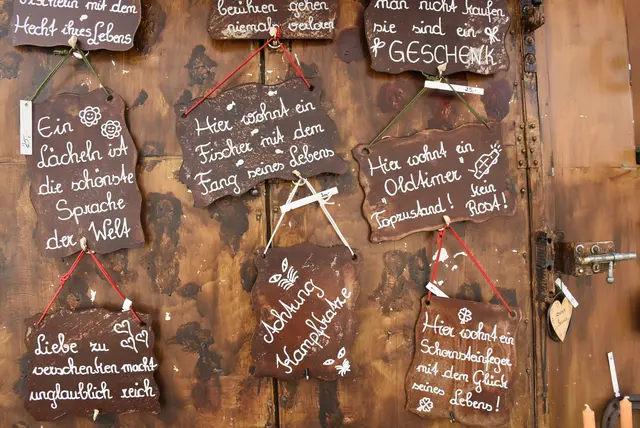 Hecht ihres Lebens
berühren gehen
niemals verloren
man nicht kaufen
sie sind ein
GESCHENK
Ein
Lächeln ist
die schönste
Sprache
der Welt
Hier wohnt ein
Fischer mit dem
Fang seines Lebens
Hier wohnt ein
Oldtimer
Topzustand!
Kein
Rost!
Liebe zu
verschenken macht
unglaublich reich
Achtung
Kampfkatze
Hier wohnt ein
Schornsteinfeger
mit dem Glück
seines Lebens!